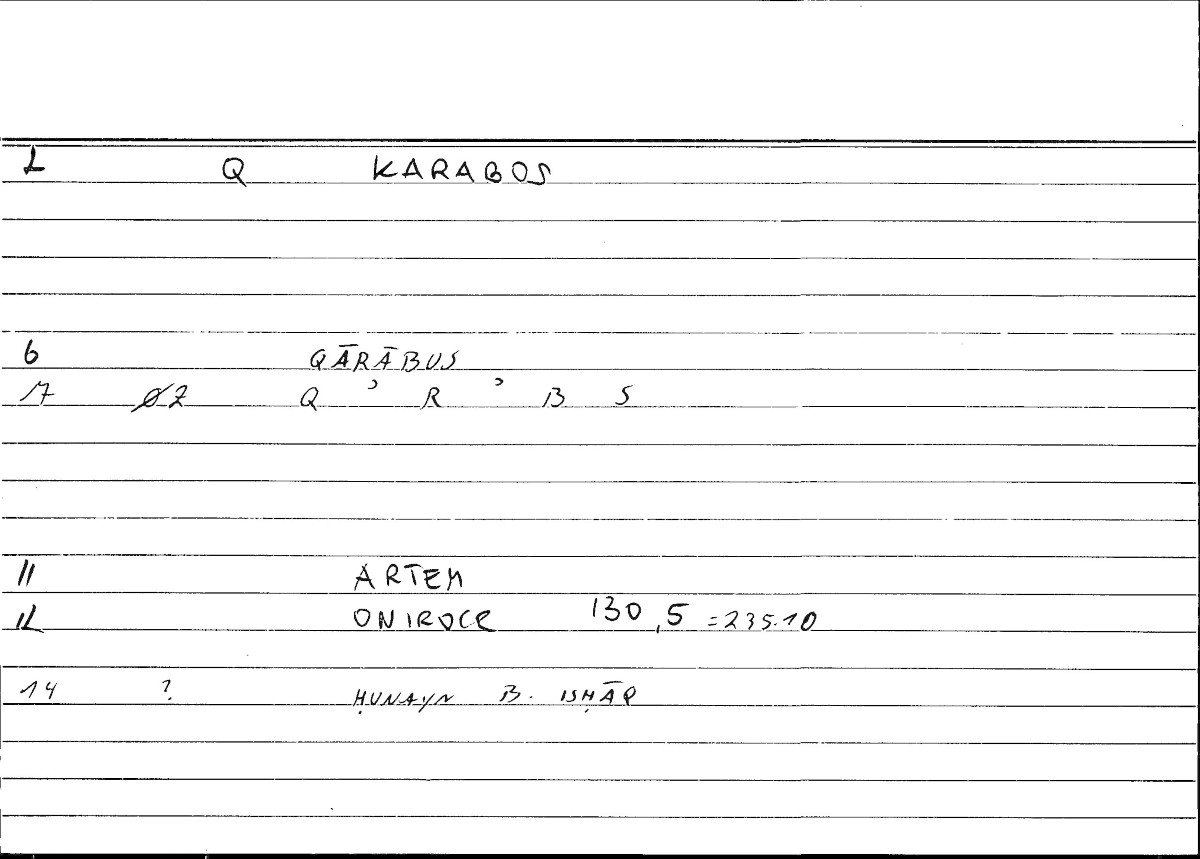 1 Q KARABOS
6 QĀRĀBUS
17 02 Q ʾ R ʾ B S
11 ARTEM
12 ONIROCR 130,5 =235.10
14 ? ḤUNAYN B. ISḤĀQ